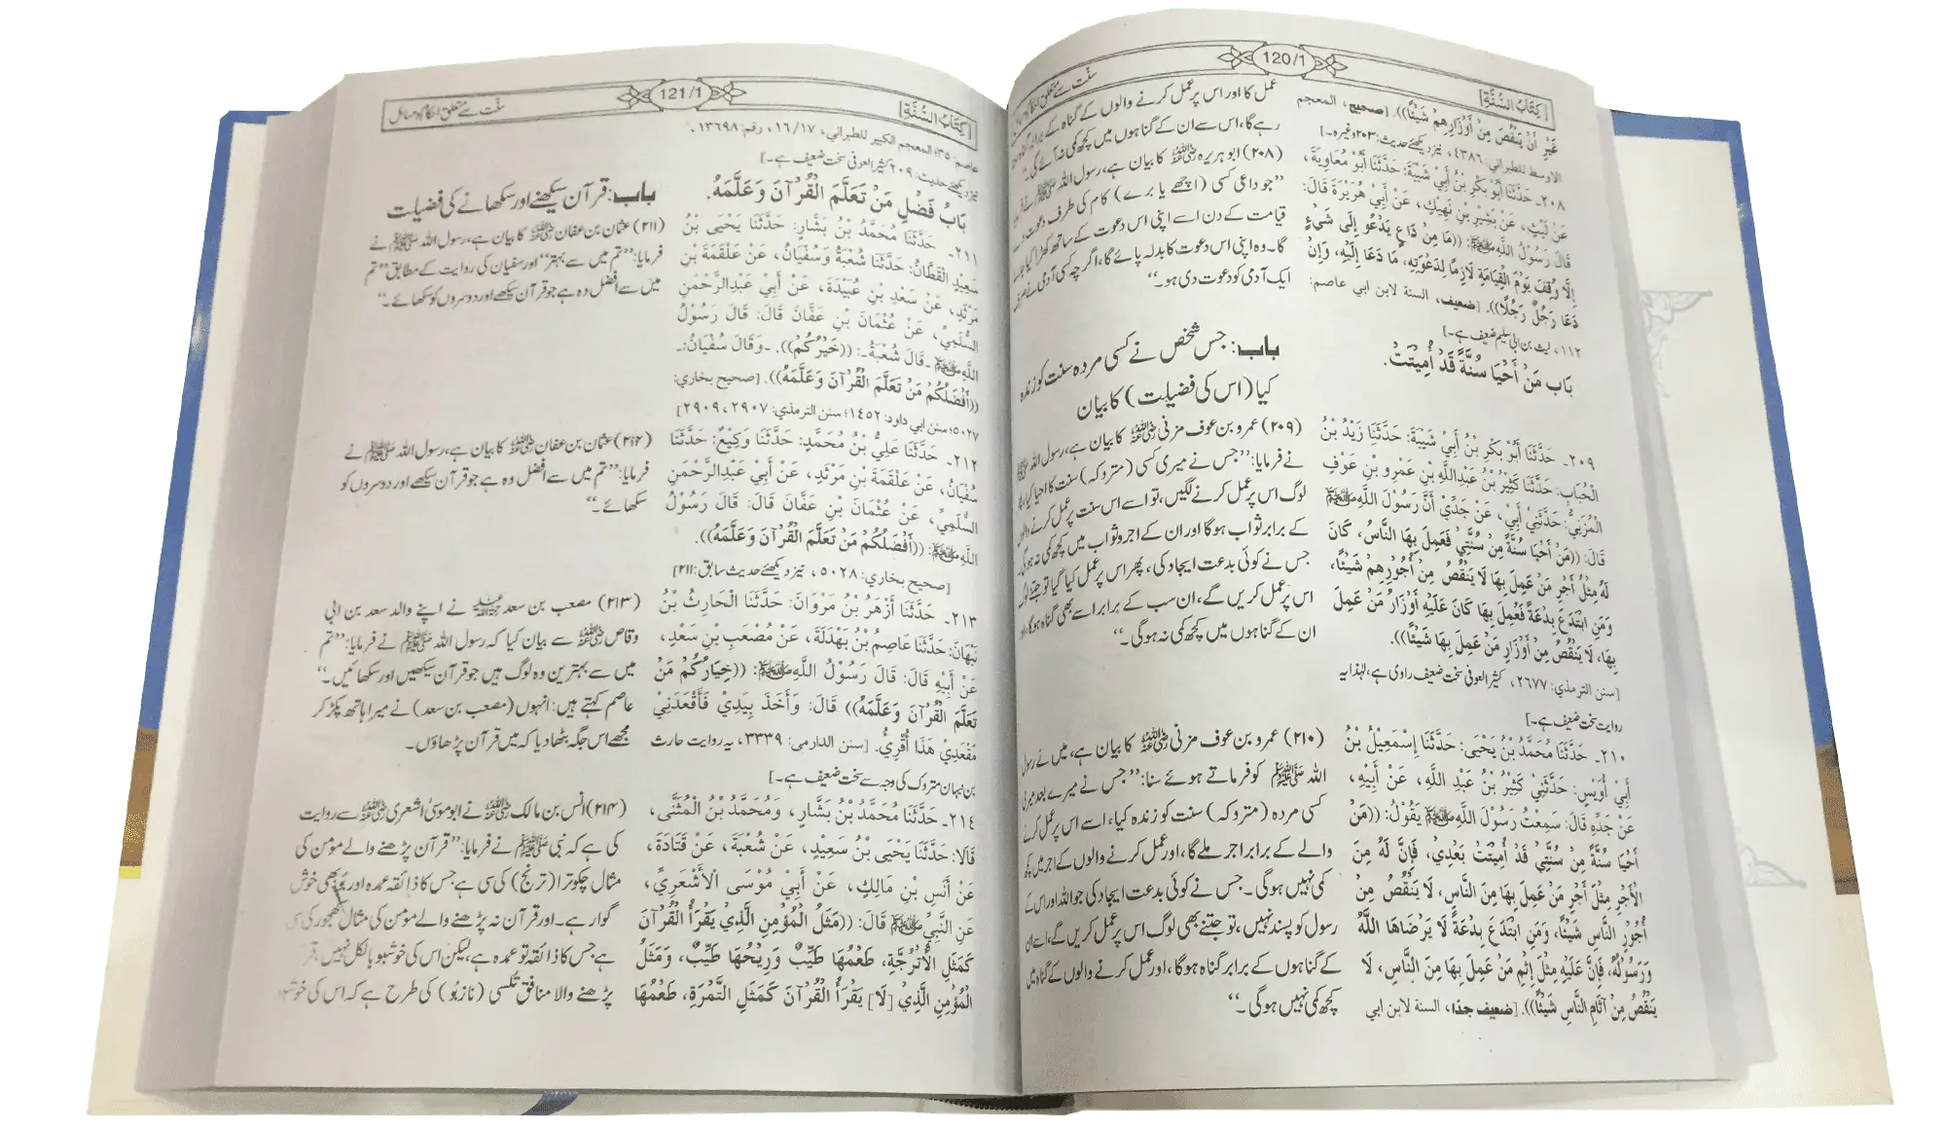 [كِتَابُ السُّنَّةِ]
120/1
سنت سے متعلق احکام و مسائل
غَيْرِ أَنْ يَنْقُصَ مِنْ أَوْزَارِهِمْ شَيْئًا)). [صحيح، المعجم
الاوسط للطبراني: ٤٣٨٦، نیز دیکھئے حدیث: ۲۰۳ وغیرہ۔]
٢٠٨۔ حَدَّثَنَا أَبُوْ بَكْرِ بْنُ أَبِيْ شَيْبَةَ: حَدَّثَنَا أَبُوْ مُعَاوِيَةَ،
عَنْ لَيْثٍ، عَنْ بَشِيْرِ بْنِ نَهِيْكٍ، عَنْ أَبِيْ هُرَيْرَةَ قَالَ:
قَالَ رَسُوْلُ اللَّهِ ﷺ: ((مَا مِنْ دَاعٍ يَدْعُو إِلَى شَيْءٍ
إِلَّا وُقِفَ يَوْمَ الْقِيَامَةِ لَازِمًا لِدَعْوَتِهِ، مَا دَعَا إِلَيْهِ، وَإِنْ
دَعَا رَجُلٌ رَجُلًا)). [ضعيف، السنة لابن ابي عاصم:
١١٢، لیث بن ابی سلیم ضعیف ہے۔]
بَابُ مَنْ أَحْيَا سُنَّةً قَدْ أُمِيْتَتْ.
٢٠٩۔ حَدَّثَنَا أَبُوْ بَكْرِ بْنُ أَبِيْ شَيْبَةَ: حَدَّثَنَا زَيْدُ بْنُ
الْحُبَابِ: حَدَّثَنَا كَثِيْرُ بْنُ عَبْدِاللَّهِ بْنِ عَمْرِو بْنِ عَوْفٍ
الْمُزَنِيُّ: حَدَّثَنِيْ أَبِيْ، عَنْ جَدِّيْ أَنَّ رَسُوْلَ اللَّهِ ﷺ
قَالَ: ((مَنْ أَحْيَا سُنَّةً مِنْ سُنَّتِيْ فَعَمِلَ بِهَا النَّاسُ، كَانَ
لَهُ مِثْلُ أَجْرِ مَنْ عَمِلَ بِهَا لَا يَنْقُصُ مِنْ أُجُوْرِهِمْ شَيْئًا،
وَمَنِ ابْتَدَعَ بِدْعَةً فَعُمِلَ بِهَا كَانَ عَلَيْهِ أَوْزَارُ مَنْ عَمِلَ
بِهَا، لَا يَنْقُصُ مِنْ أَوْزَارِ مَنْ عَمِلَ بِهَا شَيْئًا)).
[سنن الترمذي: ٢٦٧٧، کثیر العوفی سخت ضعیف راوی ہے، لہٰذا یہ
روایت سخت ضعیف ہے۔]
٢١٠۔ حَدَّثَنَا مُحَمَّدُ بْنُ يَحْيَى: حَدَّثَنَا إِسْمَعِيْلُ بْنُ
أَبِيْ أُوَيْسٍ: حَدَّثَنِيْ كَثِيْرُ بْنُ عَبْدِ اللَّهِ، عَنْ أَبِيْهِ،
عَنْ جَدِّهِ قَالَ: سَمِعْتُ رَسُوْلَ اللَّهِ ﷺ يَقُوْلُ: ((مَنْ
أَحْيَا سُنَّةً مِنْ سُنَّتِيْ قَدْ أُمِيْتَتْ بَعْدِيْ، فَإِنَّ لَهُ مِنَ
الْأَجْرِ مِثْلَ أَجْرِ مَنْ عَمِلَ بِهَا مِنَ النَّاسِ، لَا يَنْقُصُ مِنْ
أُجُوْرِ النَّاسِ شَيْئًا، وَمَنِ ابْتَدَعَ بِدْعَةً لَا يَرْضَاهَا اللَّهُ
وَرَسُوْلُهُ، فَإِنَّ عَلَيْهِ مِثْلَ إِثْمِ مَنْ عَمِلَ بِهَا مِنَ النَّاسِ، لَا
يَنْقُصُ مِنْ آثَامِ النَّاسِ شَيْئًا)). [ضعيف جدًا، السنة لابن ابي
عمل کا اور اس پر عمل کرنے والوں کے گناہ کے برابر
رہے گا، اس سے ان کے گناہوں میں کچھ کمی نہ آئے گی۔“
(۲۰۸) ابو ہریرہ رضی اللہ عنہ کا بیان ہے، رسول اللہ ﷺ
”جو داعی کسی (اچھے یا برے) کام کی طرف دعوت
قیامت کے دن اسے اپنی اس دعوت کے ساتھ کھڑا کیا
گا۔ وہ اپنی اس دعوت کا بدلہ پائے گا، اگرچہ کسی آدمی نے صرف
ایک آدمی کو دعوت دی ہو۔“
باب: جس شخص نے کسی مردہ سنت کو زندہ
کیا (اس کی فضیلت) کا بیان
(۲۰۹) عمرو بن عوف مزنی رضی اللہ عنہ کا بیان ہے، رسول اللہ ﷺ
نے فرمایا: ”جس نے میری کسی (متروکہ) سنت کا احیا کیا،
لوگ اس پر عمل کرنے لگیں، تو اسے اس سنت پر عمل کرنے والوں
کے برابر ثواب ہوگا اور ان کے اجر و ثواب میں کچھ کمی نہ ہوگی۔
جس نے کوئی بدعت ایجاد کی، پھر اس پر عمل کیا گیا تو جتنے لوگ
اس پر عمل کریں گے، ان سب کے برابر اسے بھی گناہ ہوگا،
ان کے گناہوں میں کچھ کمی نہ ہوگی۔“
(۲۱۰) عمرو بن عوف مزنی رضی اللہ عنہ کا بیان ہے، میں نے رسول
اللہ ﷺ کو فرماتے ہوئے سنا: ”جس نے میرے بعد میری
کسی مردہ (متروکہ) سنت کو زندہ کیا، اسے اس پر عمل کرنے
والے کے برابر اجر ملے گا، اور عمل کرنے والوں کے اجر میں کچھ
کمی نہیں ہوگی۔ جس نے کوئی بدعت ایجاد کی جو اللہ اور اس کے
رسول کو پسند نہیں، تو جتنے بھی لوگ اس پر عمل کریں گے، اسے ان
کے گناہوں کے برابر گناہ ہوگا، اور عمل کرنے والوں کے گناہ میں
کچھ کمی نہیں ہوگی۔“
[كِتَابُ السُّنَّةِ]
121/1
سنت سے متعلق احکام و مسائل
عاصم: ٣٥؛ المعجم الكبير للطبراني، ١٦/١٧، رقم: ١٣٦٩٨،
نیز دیکھئے حدیث: ۲۰۹ کثیر العوفی سخت ضعیف ہے۔]
بَابُ فَضْلِ مَنْ تَعَلَّمَ الْقُرْآنَ وَعَلَّمَهُ.
٢١١۔ حَدَّثَنَا مُحَمَّدُ بْنُ بَشَّارٍ: حَدَّثَنَا يَحْيَى بْنُ
سَعِيْدٍ الْقَطَّانُ: حَدَّثَنَا شُعْبَةُ وَسُفْيَانُ، عَنْ عَلْقَمَةَ بْنِ
مَرْثَدٍ، عَنْ سَعْدِ بْنِ عُبَيْدَةَ، عَنْ أَبِيْ عَبْدِالرَّحْمَنِ
السُّلَمِيِّ، عَنْ عُثْمَانَ بْنِ عَفَّانَ قَالَ: قَالَ رَسُوْلُ
اللَّهِ ﷺ ۔قَالَ شُعْبَةُ۔: ((خَيْرُكُمْ)). ۔وَقَالَ سُفْيَانُ:۔
((أَفْضَلُكُمْ مَنْ تَعَلَّمَ الْقُرْآنَ وَعَلَّمَهُ)). [صحيح بخاري:
٥٠٢٧؛ سنن ابي داود: ١٤٥٢؛ سنن الترمذي: ٢٩٠٧، ٢٩٠٩]
٢١٢۔ حَدَّثَنَا عَلِيُّ بْنُ مُحَمَّدٍ: حَدَّثَنَا وَكِيْعٌ: حَدَّثَنَا
سُفْيَانُ، عَنْ عَلْقَمَةَ بْنِ مَرْثَدٍ، عَنْ أَبِيْ عَبْدِالرَّحْمَنِ
السُّلَمِيِّ، عَنْ عُثْمَانَ بْنِ عَفَّانَ قَالَ: قَالَ رَسُوْلُ
اللَّهِ ﷺ: ((أَفْضَلُكُمْ مَنْ تَعَلَّمَ الْقُرْآنَ وَعَلَّمَهُ)).
[صحيح بخاري: ٥٠٢٨، نیز دیکھئے حدیث سابق: ۲۱۱]
٢١٣۔ حَدَّثَنَا أَزْهَرُ بْنُ مَرْوَانَ: حَدَّثَنَا الْحَارِثُ بْنُ
نَبْهَانَ: حَدَّثَنَا عَاصِمُ بْنُ بَهْدَلَةَ، عَنْ مُصْعَبِ بْنِ سَعْدٍ،
عَنْ أَبِيْهِ قَالَ: قَالَ رَسُوْلُ اللَّهِ ﷺ: ((خِيَارُكُمْ مَنْ
تَعَلَّمَ الْقُرْآنَ وَعَلَّمَهُ)) قَالَ: وَأَخَذَ بِيَدِيْ فَأَقْعَدَنِيْ
مَقْعَدِيْ هَذَا أُقْرِئُ. [سنن الدارمي: ٣٣٣٩، یہ روایت حارث
بن نبہان متروک کی وجہ سے سخت ضعیف ہے۔]
٢١٤۔ حَدَّثَنَا مُحَمَّدُ بْنُ بَشَّارٍ، وَمُحَمَّدُ بْنُ الْمُثَنَّى،
قَالَا: حَدَّثَنَا يَحْيَى بْنُ سَعِيْدٍ، عَنْ شُعْبَةَ، عَنْ قَتَادَةَ،
عَنْ أَنَسِ بْنِ مَالِكٍ، عَنْ أَبِيْ مُوْسَى الْأَشْعَرِيِّ،
عَنِ النَّبِيِّ ﷺ قَالَ: ((مَثَلُ الْمُؤْمِنِ الَّذِيْ يَقْرَأُ الْقُرْآنَ
كَمَثَلِ الْأُتْرُجَّةِ، طَعْمُهَا طَيِّبٌ وَرِيْحُهَا طَيِّبٌ، وَمَثَلُ
الْمُؤْمِنِ الَّذِيْ [لَا] يَقْرَأُ الْقُرْآنَ كَمَثَلِ التَّمْرَةِ، طَعْمُهَا
باب: قرآن سیکھنے اور سکھانے کی فضیلت
(۲۱۱) عثمان بن عفان رضی اللہ عنہ کا بیان ہے، رسول اللہ ﷺ نے
فرمایا: ”تم میں سے بہتر“ اور سفیان کی روایت کے مطابق ”تم
میں سے افضل وہ ہے جو قرآن سیکھے اور دوسروں کو سکھائے۔“
(۲۱۲) عثمان بن عفان رضی اللہ عنہ کا بیان ہے، رسول اللہ ﷺ نے
فرمایا: ”تم میں سے افضل وہ ہے جو قرآن سیکھے اور دوسروں کو
سکھائے۔“
(۲۱۳) مصعب بن سعد رحمہ اللہ نے اپنے والد سعد بن ابی
وقاص رضی اللہ عنہ سے بیان کیا کہ رسول اللہ ﷺ نے فرمایا: ”تم
میں سے بہترین وہ لوگ ہیں جو قرآن سیکھیں اور سکھائیں۔“
عاصم کہتے ہیں: انہوں (مصعب بن سعد) نے میرا ہاتھ پکڑ کر
مجھے اس جگہ بٹھا دیا کہ میں قرآن پڑھاؤں۔
(۲۱۴) انس بن مالک رضی اللہ عنہ نے ابو موسیٰ اشعری رضی اللہ عنہ سے روایت
کی ہے کہ نبی ﷺ نے فرمایا: ”قرآن پڑھنے والے مومن کی
مثال چکوترا (ترنج) کی سی ہے جس کا ذائقہ عمدہ اور بو بھی خوش
گوار ہے۔ اور قرآن نہ پڑھنے والے مومن کی مثال کھجور کی سی
ہے جس کا ذائقہ تو عمدہ ہے، لیکن اس کی خوشبو بالکل نہیں،
پڑھنے والا منافق تلسی (نازبو) کی طرح ہے کہ اس کی